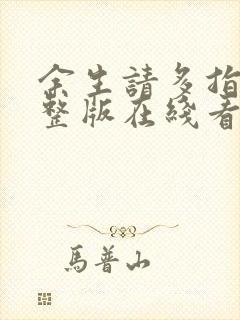 余生請多指
整版在綫看
馬普山